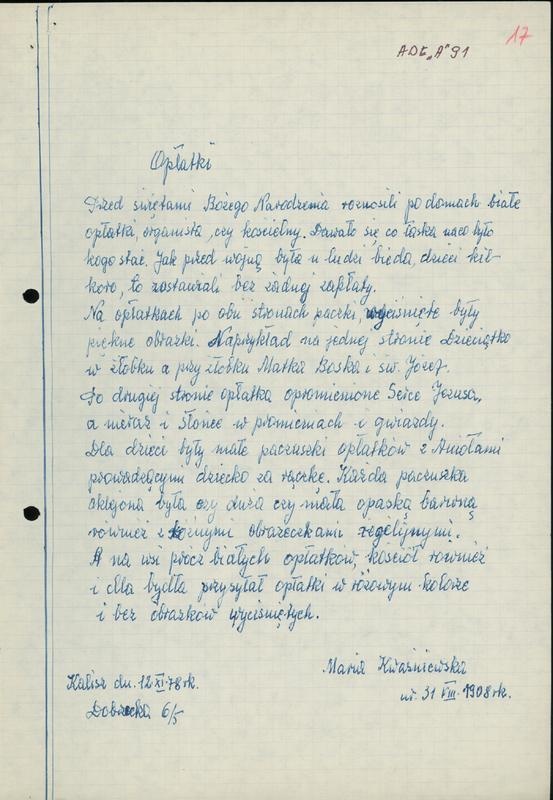 17
ADE „A" 91
Opłatki
Przed świętami Bożego Narodzenia roznosili po domach białe
opłatki, organista, czy kościelny. Dawało się co łaska na co było
kogo stać. Jak przed wojną była u ludzi bieda, dzieci kil-
koro, to zostawiali bez żadnej zapłaty.
Na opłatkach po obu stronach paczki, wyciśnięte były
piękne obrazki. Naprzykład na jednej stronie Dzieciątko
w żłobku a przy żłobku Matka Boska i św. Józef.
Po drugiej stronie opłatka opromienione Serce Jezusa,
a nieraz i słońce w promieniach i gwiazdy.
Dla dzieci były małe paczuszki opłatków z Aniołami
prowadzącymi dziecko za rączkę. Każda paczuszka
sklejona była czy duża czy mała opaską barwną
również z różnymi obrazeczkami religijnymi.
A na wsi prócz białych opłatków, kościół również
i dla bydła przysyłał opłatki w różowym kolorze
i bez obrazków wyciśniętych.
Maria Kwaśniewska
ur. 31 VIII 1908 rk.
Kalisz dn. 12 XI 78 rk.
Dobrzecka 6/5